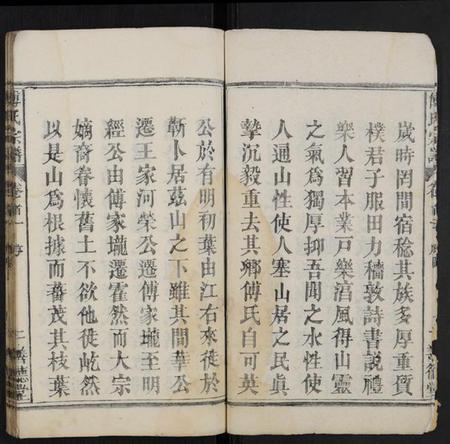 歲時罔間宿稔其族多厚重質
樸君子服田力穡敦詩書說禮
衆人習本業戸樂淯風得山靈
之氣爲獨厚抑吾聞之水性使
人通山性使人塞山居之民眞
摯沉毅重去其鄉傅氏自可英
公於有明初葉由江右來徙於
靳卜居茲山之下雖其間華公
遷王家河榮公遷傅家壠至明
經公由傅家壠遷霍然而大宗
嫡裔眷懷舊土不欲他徙屹然
以是山爲根據而蕃茂其枝葉
傅氏宗譜
卷首一
序